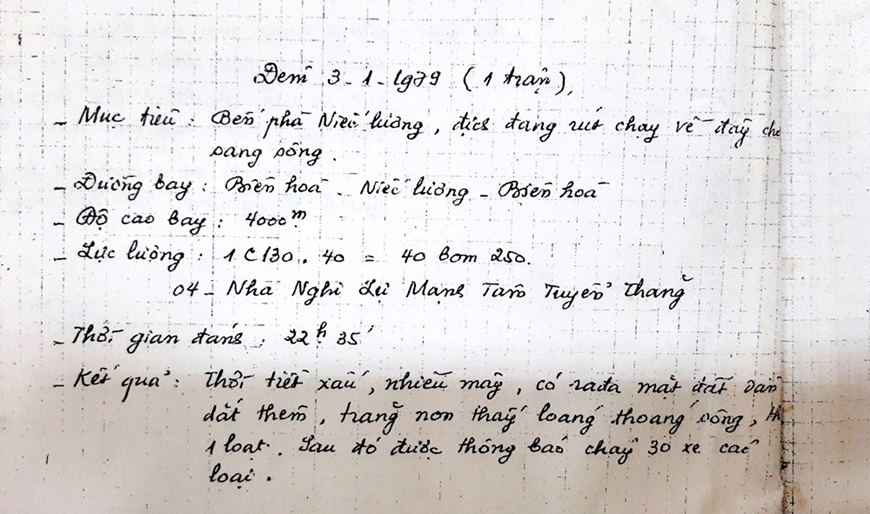 Đêm 3-1-1979 (1 trận),
- Mục tiêu : Bến phà Niếc lương, địch đang rút chạy về đây
sang sông.
- Đường bay : Biên hoà - Niếc lương - Biên hoà
- Độ cao bay : 4000m
- Lực lượng : 1 C130. 40 = 40 bom 250.
04 - Nhã Nghì Lự Mạnh Tám Tuyển Thăng
- Thời gian đánh : 22h 35'
- Kết quả : Thời tiết xấu, nhiều mây, có rađa mặt đất dẫn
dắt thêm, trăng non thấy loang thoáng sông,
1 loạt. Sau đó được thông báo cháy 30 xe các
loại.